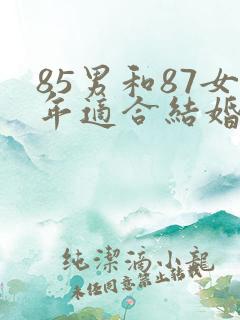 85男和87女
年適合結婚
純潔滴小龍
未任同意禁止转载